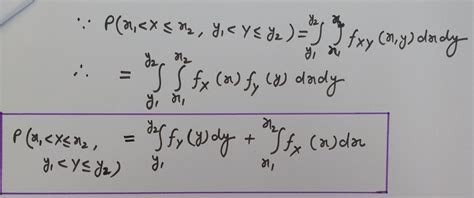 ∵ P(x₁<X≤x₂, y₁<Y≤y₂) = ∫_{y₁}^{y₂} ∫_{x₁}^{x₂} f_{XY}(x,y) dx dy
∴ = ∫_{y₁}^{y₂} ∫_{x₁}^{x₂} f_X(x) f_Y(y) dx dy
P(x₁<X≤x₂, y₁<Y≤y₂) = ∫_{y₁}^{y₂} f_Y(y) dy + ∫_{x₁}^{x₂} f_X(x) dx